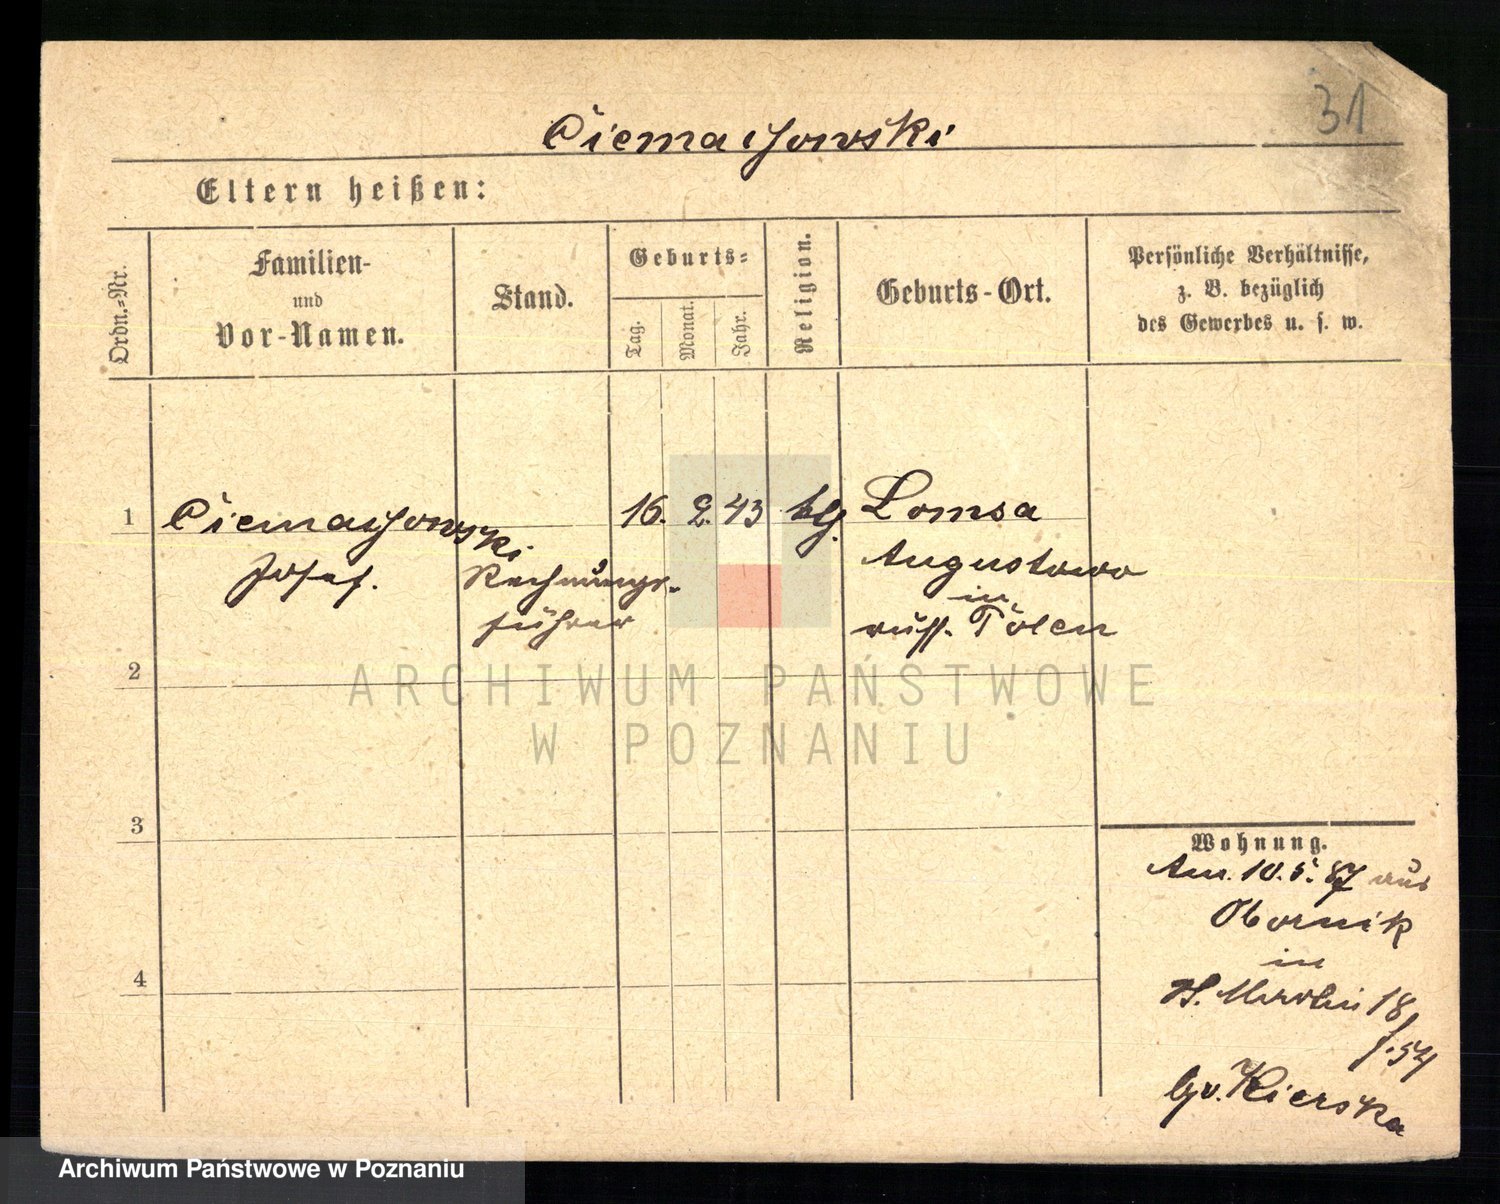 31
Ciemachowski
Eltern heißen:
Ordn.-Nr.
Familien-
und
Vor-Namen.
Stand.
Geburts-
Tag.
Monat.
Jahr.
Religion.
Geburts-Ort.
Persönliche Verhältnisse,
z. B. bezüglich
des Gewerbes u. s. w.
1
Ciemachowski
Josef.
Rechnungs-
führer
16. 2. 43
Lomsa
Augustowo
in
russ. Polen
2
3
4
Wohnung.
10.5.87 aus
Obornik
in
St. Martin 18
b/v. Kierska
ARCHIWUM PAŃSTWOWE
W POZNANIU
Archiwum Państwowe w Poznaniu